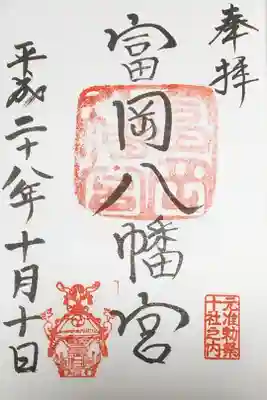 奉拝
富岡八幡宮
平成二十八年十月十日
元准勅祭
十社之内